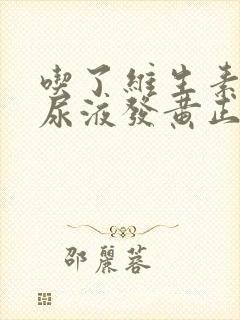 喫了維生素
尿液發黃正
邵麗蓉